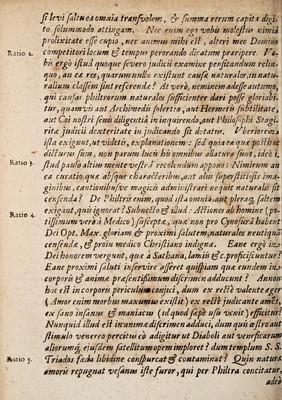 si levi saltu ea omnia transvolem, & summa rerum capita digi-
to solummodo attingam. Nec enim ego vobis molestus nimia
prolixitate esse cupio, nec animus mihi est, alteri meo Domino
Ratio 2. competitori locum & tempus perorandi dictatum præripere. Vo-
bis ergò istud quoque severo judicii examine pensitandum relin-
quo, an ea res, quarum nullæ existunt causæ naturales, in natu-
ralium classem sint referendæ? At verò, neminem adesse autumo,
qui causas philtrorum naturales sufficienter dari posse gloriabi-
tur, quamvis aut Archimedis solertia, aut Hermetis subtilitate,
aut Coi nostri senis diligentia in inquirendo, aut Philosophi Stagi-
ritæ judicii dexteritate in judicando sit dotatus. Uberiorem
ista exigunt, ut videtis, explanationem: sed quia ea quæ post hæc
dicturus sum, non parum lucis his omnibus allatura sunt, ideò &
Ratio 3. istud paulò altius mente vestrâ revolvendum appono: Nimirum an
ea curatio quæ absque characteribus, aut aliis superstitiosis ima-
ginibus, cantionibusve magicis administrari nequit naturalis sit
censenda? De Philtris enim, quod ista omnia, aut pleraq; saltem
exigant, quis ignorat? Subnecto & illud: Actiones ab homine (po-
Ratio 4. tissimum verò à Medico) susceptæ, quæ non pro Opusfine habent
Dei Opt. Max. gloriam & proximi salutem, naturales neutiquam
censendæ, & proin medico Christiano indignæ. Eane ergò in
Dei honorem vergunt, quæ à Sathana, lamiis &c. perficiscuntur?
Eane proximi saluti inservire asseret quispiam quæ eundem in
corporis & animæ præsentissimum discrimen adducunt? Annon
hoc est in corporis periculum conjici, dum ex rectè valente æger
(Amor enim morbus maxumus existit) ex rectè judicante amẽs,
ex sano insanus & maniacus (id quod sæpè usù venit) efficitur?
Nunquid illud est in animæ discrimen adduci, dum quis æstro aut
stimulo venereo percitus eò adigitur ut Diaboli aut veneficarum
aliorumq; ejusdem satellitum opem imploret? dum templum S. S.
Ratio 5. Triados fœda libidine conspurcat & contaminat? Quin natura
amoris repugnat vesanus iste furor, qui per Philtra concitatur,
adeò